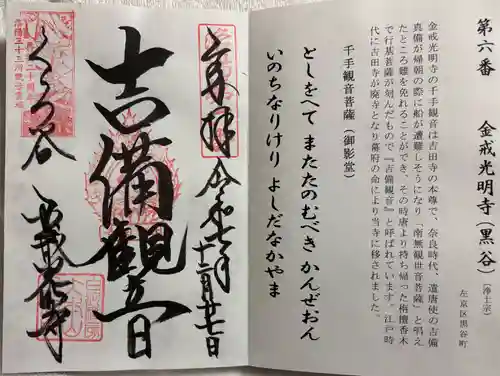 第六番 金戒光明寺(黒谷)(浄土宗)
左京区黒谷町
金戒光明寺の千手観音は吉田寺の本尊で、奈良時代、遣唐使の吉備
真備が帰朝の際に船が遭難しそうになり「南無観世音菩薩」と唱え
たところ難を免れることができ、その時唐より持ち帰った栴檀香木
で行基菩薩が刻んだもので『吉備観音』と呼ばれています。江戸時
代に吉田寺が廃寺となり幕府の命により当寺に移されました。
千手観音菩薩(御影堂)
としをへて またたのむべき かんぜおん
いのちなりけり よしだなかやま
奉拝 令和 十二月廿七日
吉備観音
洛陽三十三所観音霊場
くろ谷 金戒光明寺